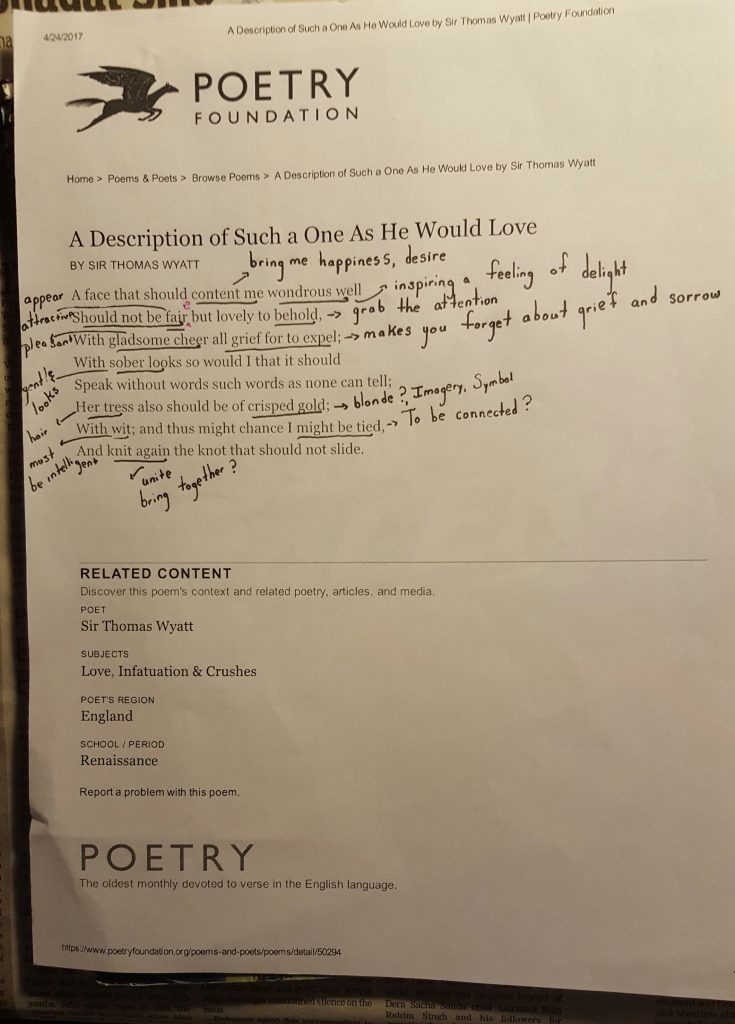 4/24/2017
A Description of Such a One As He Would Love by Sir Thomas Wyatt | Poetry Foundation
POETRY
FOUNDATION
Home > Poems & Poets > Browse Poems > A Description of Such a One As He Would Love by Sir Thomas Wyatt
A Description of Such a One As He Would Love
BY SIR THOMAS WYATT
bring me happiness, desire
appear
A face that should content me wondrous well
inspiring a feeling of delight
attractive
Should not be fair but lovely to behold,
e
grab the attention
pleasant
With gladsome cheer all grief for to expel;
makes you forget about grief and sorrow
gentle looks
With sober looks so would I that it should
Speak without words such words as none can tell;
hair
Her tress also should be of crisped gold;
blonde?, Imagery, Symbol
must be intelligent
With wit; and thus might chance I might be tied,
To be connected?
And knit again the knot that should not slide.
unite
bring together?
RELATED CONTENT
Discover this poem's context and related poetry, articles, and media.
POET
Sir Thomas Wyatt
SUBJECTS
Love, Infatuation & Crushes
POET'S REGION
England
SCHOOL / PERIOD
Renaissance
Report a problem with this poem.
POETRY
The oldest monthly devoted to verse in the English language.
https://www.poetryfoundation.org/poems-and-poets/poems/detail/50294
maintained silence on the
issue
Dera Sacha Sauda chief Gurmeet Ram
Rahim Singh and his followers for